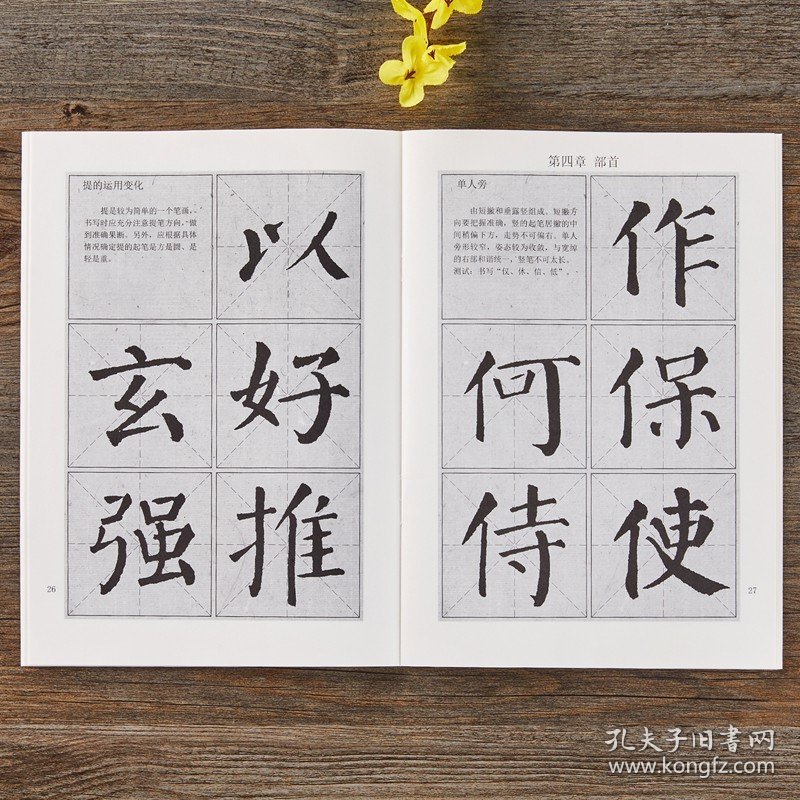 提的运用变化
提是较为简单的一个笔画，
书写时应充分注意提笔方向，做
到准确果断。另外，应根据具体
情况确定提的起笔是方是圆、是
轻是重。
以
玄好
强推
26
第四章 部首
单人旁
由短撇和垂露竖组成。短撇方
向要把握准确，竖的起笔居撇的中
间稍偏下方，走势不可偏右。单人
旁形较窄，姿态较为收敛，与宽绰
的右部和谐统一，竖笔不可太长。
测试：书写“仅、休、信、低”。
作
何保
侍使
27
孔夫子旧書网
www.kongfz.com